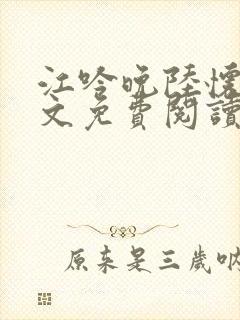 江吟晚陸懷
文免費閱讀
原来是三歲呐